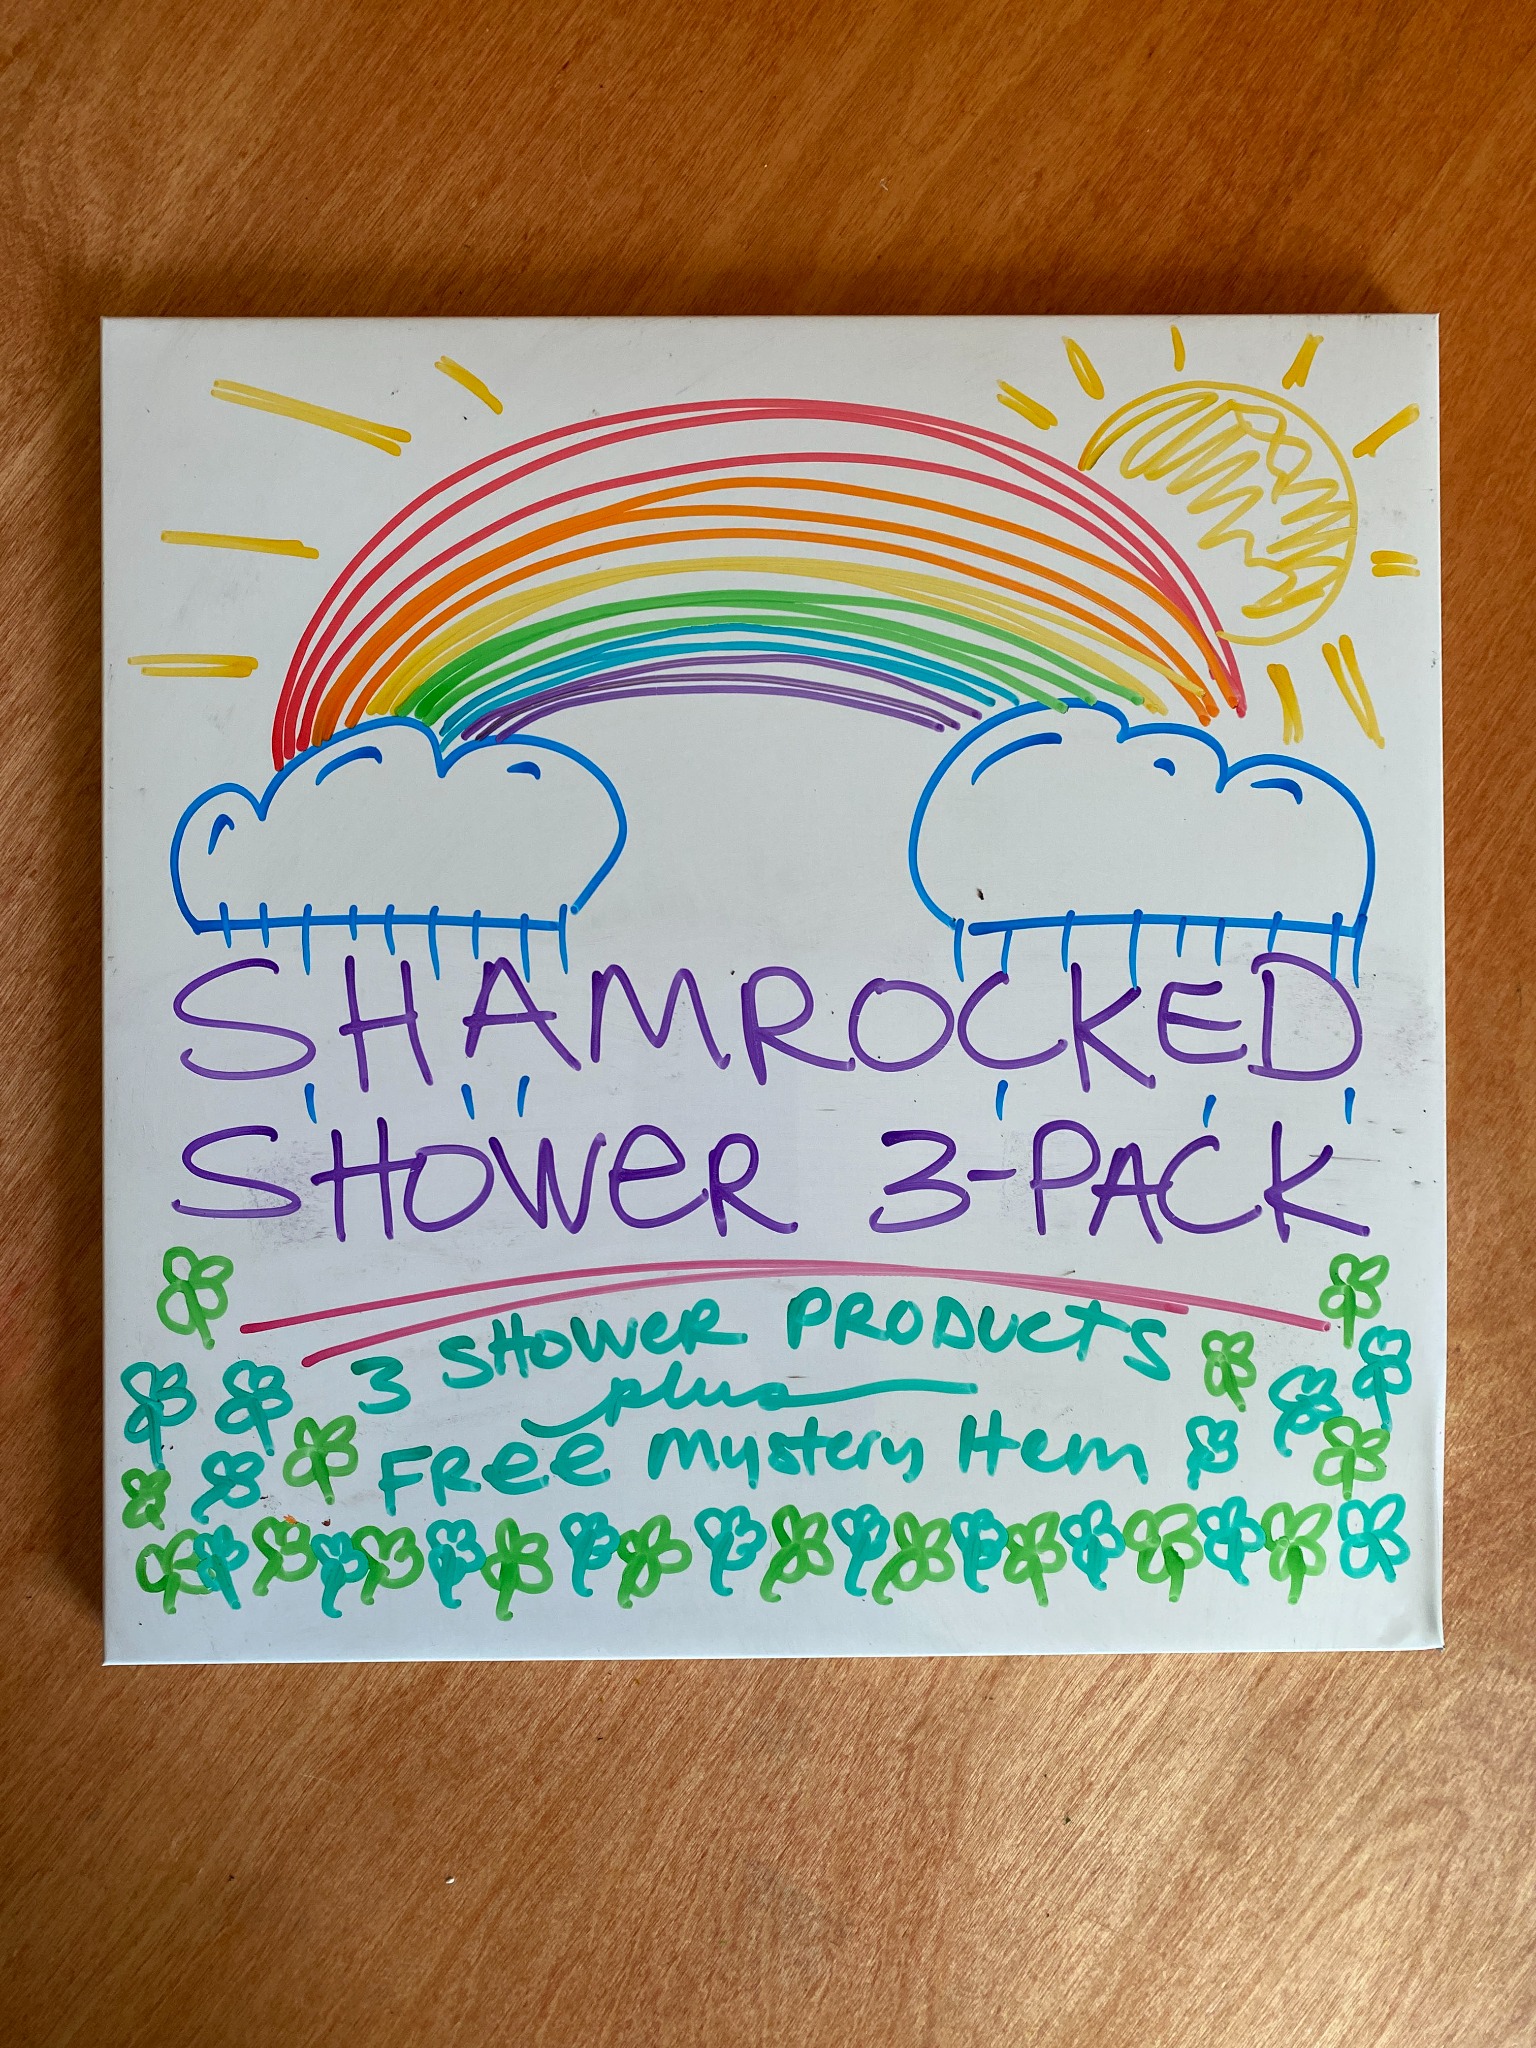 SHAMROCKED
SHOWeR 3-PACK
3 SHOWeR PRODUcts
plus
FRee mystery Item